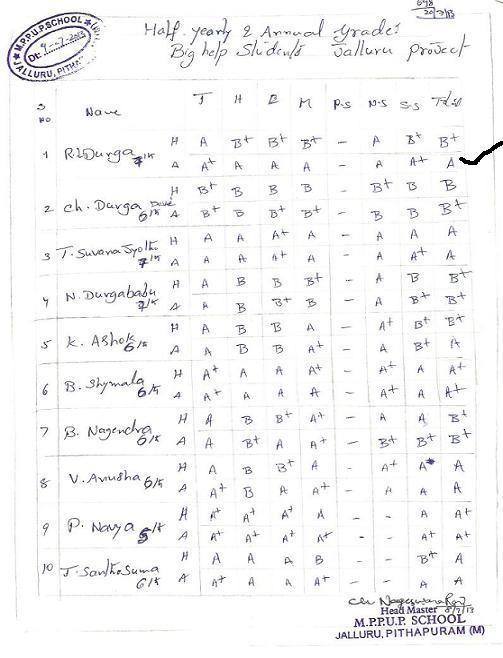 M.P.P.U.P. SCHOOL
JALLURU, PITHA
Half yearly & Annual Grades
Big help Students Jalluru project
S NO Name T H E M P.S N.S S.S Total
1 R.L.Durga 7th H A B+ B+ B+ - A B+ B+
A A+ A A A - A A+ A
2 Ch. Durga Devi 6th H B+ B B B - B+ B B
A B+ B B+ B+ - B B B+
3 T. Suvana Jyothi 7th H A A A+ A - A A A
A A A A+ A - A A+ A
4 N. Durgababu 7th H A B B B+ - A B B+
A A B B+ B - A B+ B+
5 K. Ashok 6th H A B B A - A+ B+ B+
A A B B A+ - A B+ A
6 B. Shymala 6th H A+ A A A+ - A+ A A+
A A+ A A A+ - A+ A A+
7 B. Nagendra 6th H A B B+ A+ - A A B+
A A B+ A A+ - B+ B+ B+
8 V. Anusha 6th H A B B+ A - A+ A A
A A+ B A A+ - - A A A
9 P. Navya 5th H A+ A+ A+ A - - A A+
A A+ A+ A+ A+ - - A+ A+
10 T. Santhosuma 6th H A A A B - - B+ A
A A+ A A A+ - - A A
Ch Nageswara Rao
Head Master
M.P.P.U.P. SCHOOL
JALLURU, PITHAPURAM (M)